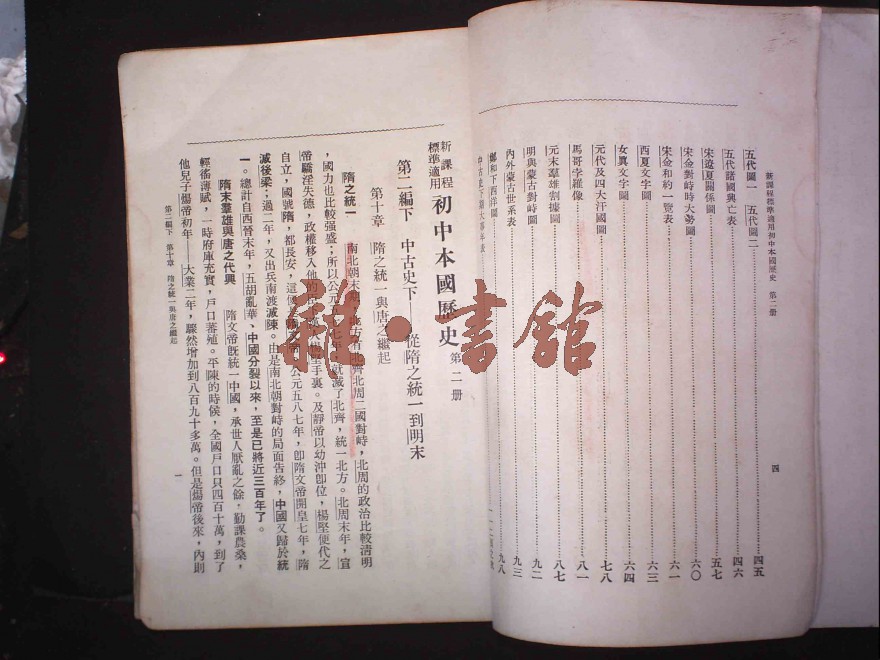 新課程標準適用初中本國歷史 第二册
四
五代圖一 五代圖二……四五
五代諸國興亡表……四六
宋遼夏關係圖……五七
宋金對峙時大勢圖……六〇
宋金和約一覽表……六一
西夏文字圖……六三
女眞文字圖……六四
元代及四大汗國圖……七八
馬哥孛羅像……八一
元末羣雄割據圖……八七
明與蒙古對峙圖……九二
內外蒙古世系表……九三
鄭和下西洋圖……九八
中古史下期大事年表
新課程標準適用 初中本國歷史 第二册
第二編下 中古史下——從隋之統一到明末
第十章 隋之統一與唐之繼起
隋之統一 南北朝末期,北方有北齊北周二國對峙,北周的政治比較清明
,國力也比較强盛;所以公元五七七年,就滅了北齊,統一北方。北周末年,宣
帝驕淫失德,政權移入他的楊堅手裏。及靜帝以幼沖卽位,楊堅便代之
自立,國號隋,都長安,這便是隋文帝。公元五八七年,卽隋文帝開皇七年,隋
滅後梁;過二年,又出兵南渡滅陳。由是南北朝對峙的局面告終,中國又歸於統
一。總計自西晉末年,五胡亂華、中國分裂以來,至是已將近三百年了。
隋末羣雄與唐之代興 隋文帝旣統一中國,承世人厭亂之餘,勤課農桑,
輕徭薄賦,一時府庫充實,戶口蕃殖。平陳的時候,全國戶口只四百十萬,到了
他兒子煬帝初年——大業二年,驟然增加到八百九十多萬。但是煬帝後來,內則
第二編下 第十章 隋之統一與唐之繼起
一
雜·書館